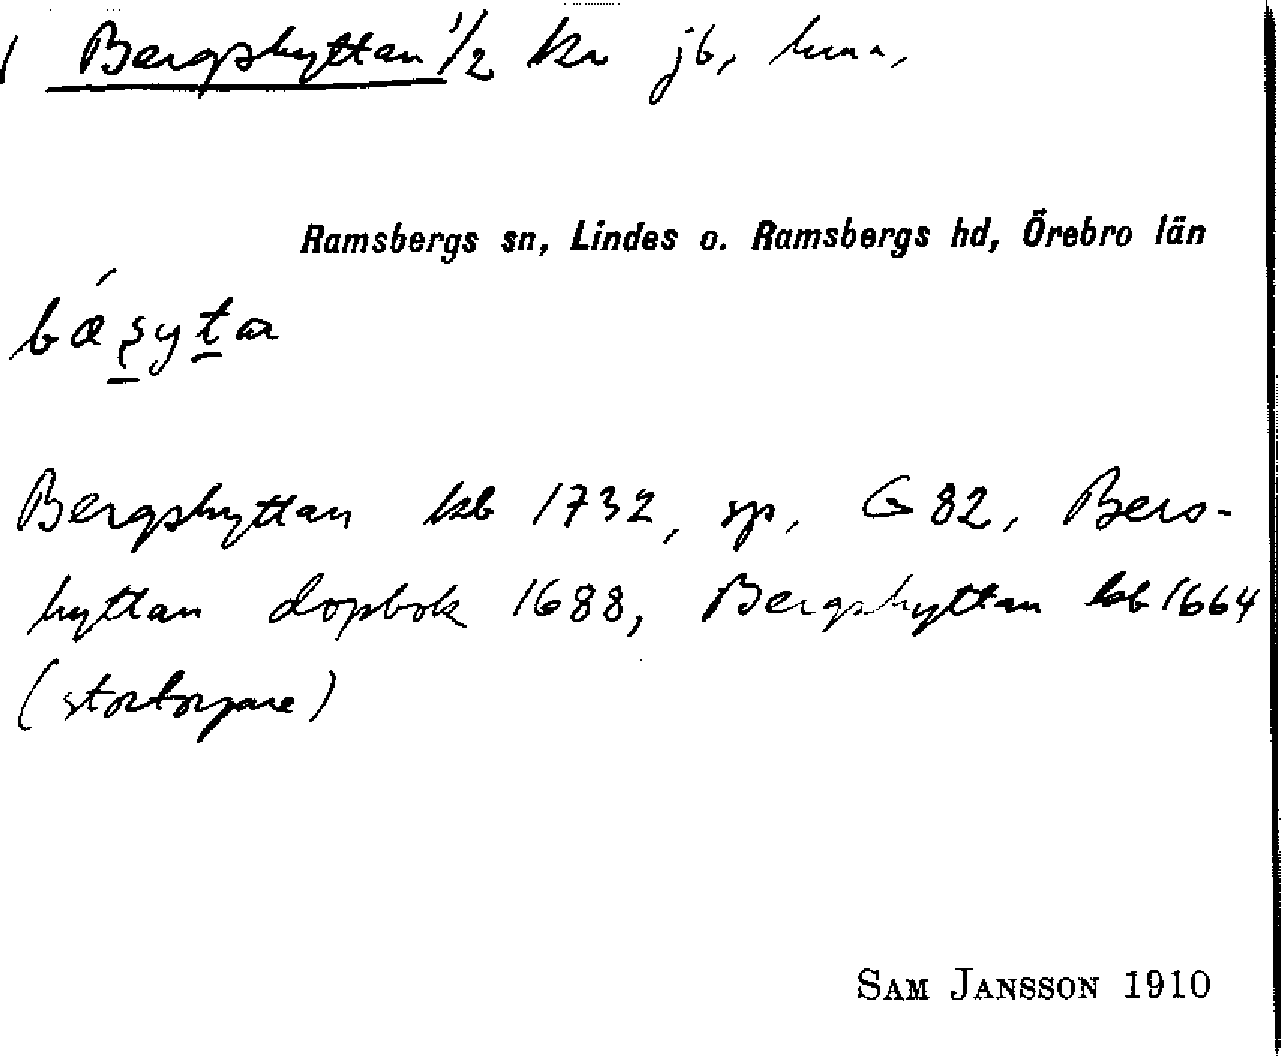 Bergshyttan 1/2 kr jb,
Ramsbergs sn, Lindes o. Ramsbergs hd, Örebro län
bǽṣyta
Bergshyttan kb 1732, sp. G 82, Bers-
hyttan dopbok 1688, Bergshyttan kb 1664
(stortorpare)
SAM JANSSON 1910